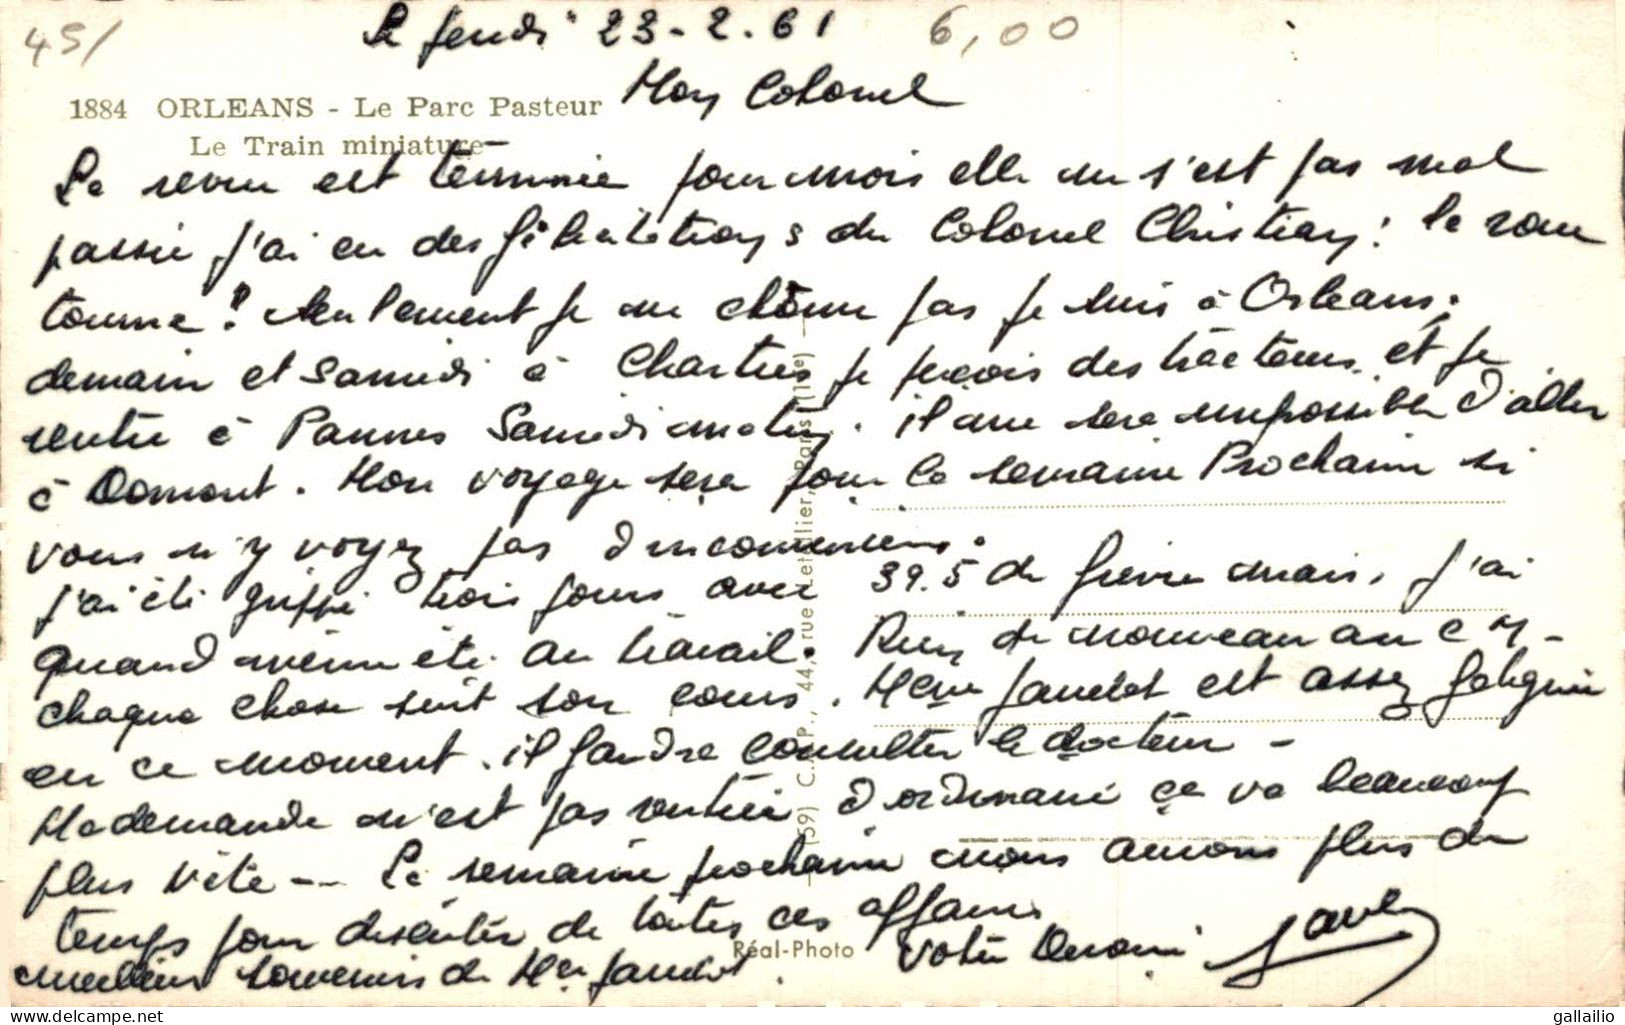 45/ Le Jeudi 23-2.61 6,00
Mon Colonel
1884 ORLEANS - Le Parc Pasteur
Le Train miniature
La revue est terminée pour moi elle ne s'est pas mal
passée j'ai eu des félicitations du Colonel Christian: la roue
tourne! seulement je ne chôme pas je suis à Orléans.
demain et Samedi à Chartres je reçois des tracteurs et je
rentre à Pannes Samedi matin. il me sera impossible d'aller
à Domont. Mon voyage sera pour la semaine Prochaine si
vous n'y voyez pas d'inconvénient.
j'ai été grippé trois jours avec 39.5 de fièvre mais, j'ai
quand même été au travail. Rien de nouveau au C M -
chaque chose suit son cours. Mme Jaudot est assez fatiguée
en ce moment. il faudra consulter le docteur -
Ma demande n'est pas rentrée d'ordinaire ça va beaucoup
plus vite -- La semaine prochaine nous aurons plus de
temps pour discuter de toutes ces affaires
meilleurs souvenirs de Me Jaudot. Votre
Réal-Photo
(59) C.A.P., 44, rue Letellier, Paris (15e)
gallailio
www.delcampe.net